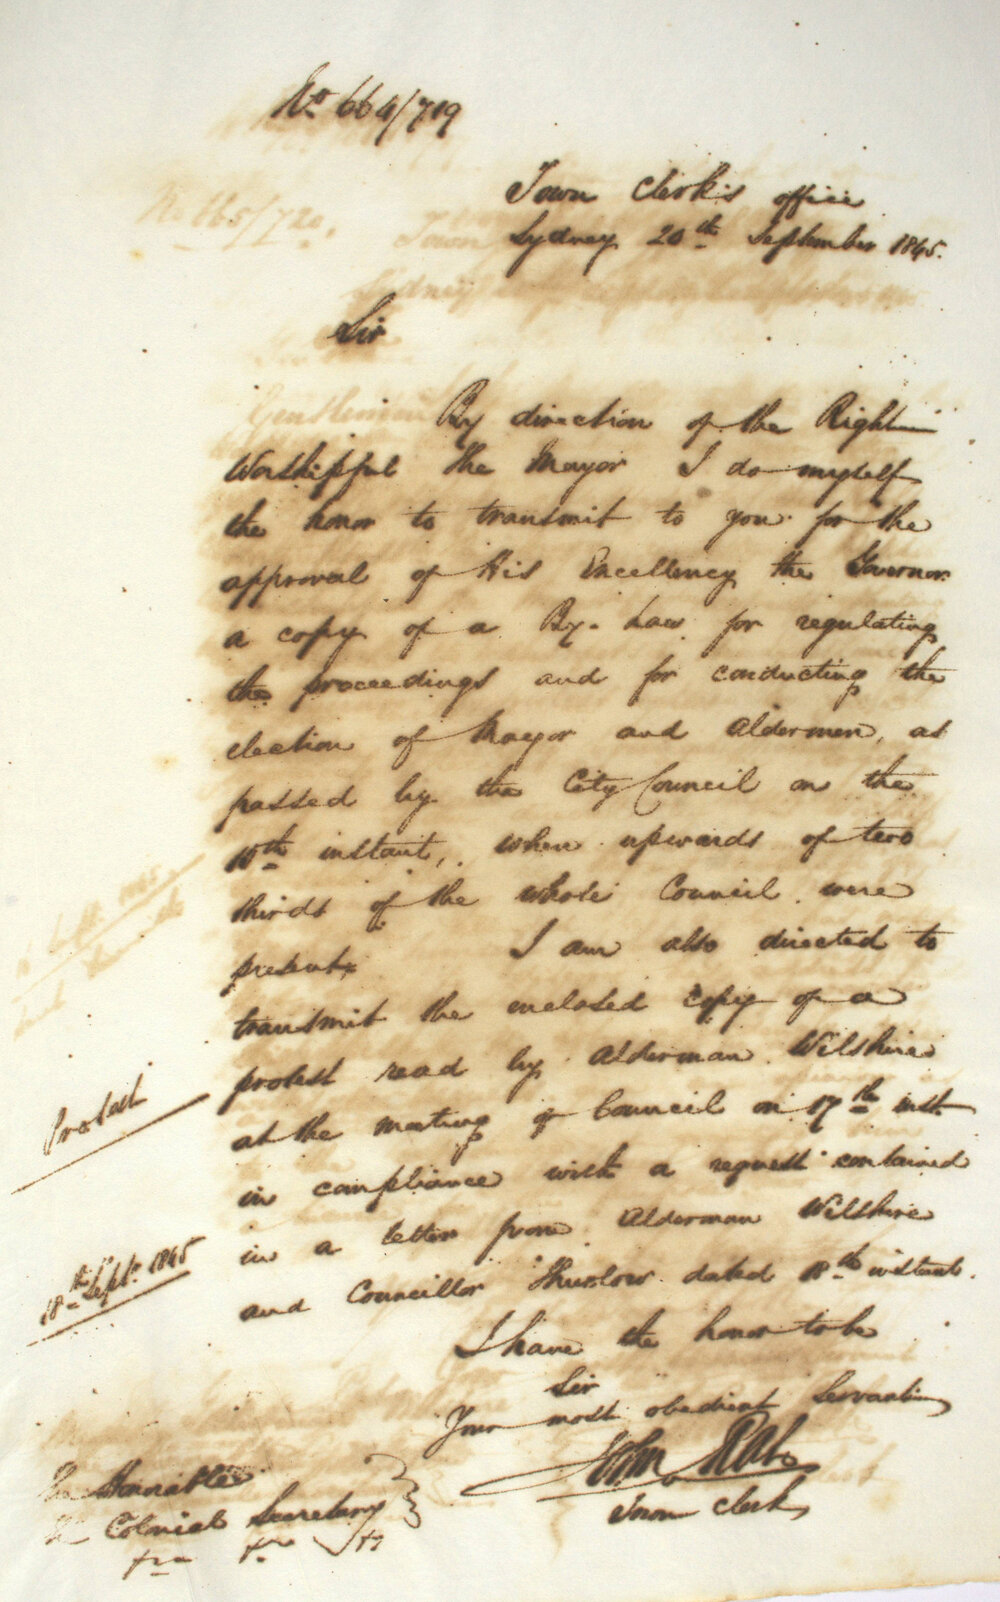 No 664/719
Town Clerk's office
Sydney 20th September 1845.
Sir
By direction of the Right
Worshipful the Mayor I do myself
the honor to transmit to you for the
approval of His Excellency the Governor
a copy of a By-Law for regulating
the proceedings and for conducting the
election of Mayor and Aldermen, as
passed by the City Council on the
10th instant, when upwards of two
thirds of the whole Council were
present. I am also directed to
transmit the enclosed copy of a
protest read by Alderman Wilshire
Protest
at the meeting of Council on 17th inst.
in compliance with a request contained
in a letter from Alderman Wilshire
18th Sept. 1845
and Councillor Thurlow dated 18th instant.
I have the honor to be
Sir
Your most obedient Servant
The Honorable
The Colonial Secretary
Town Clerk